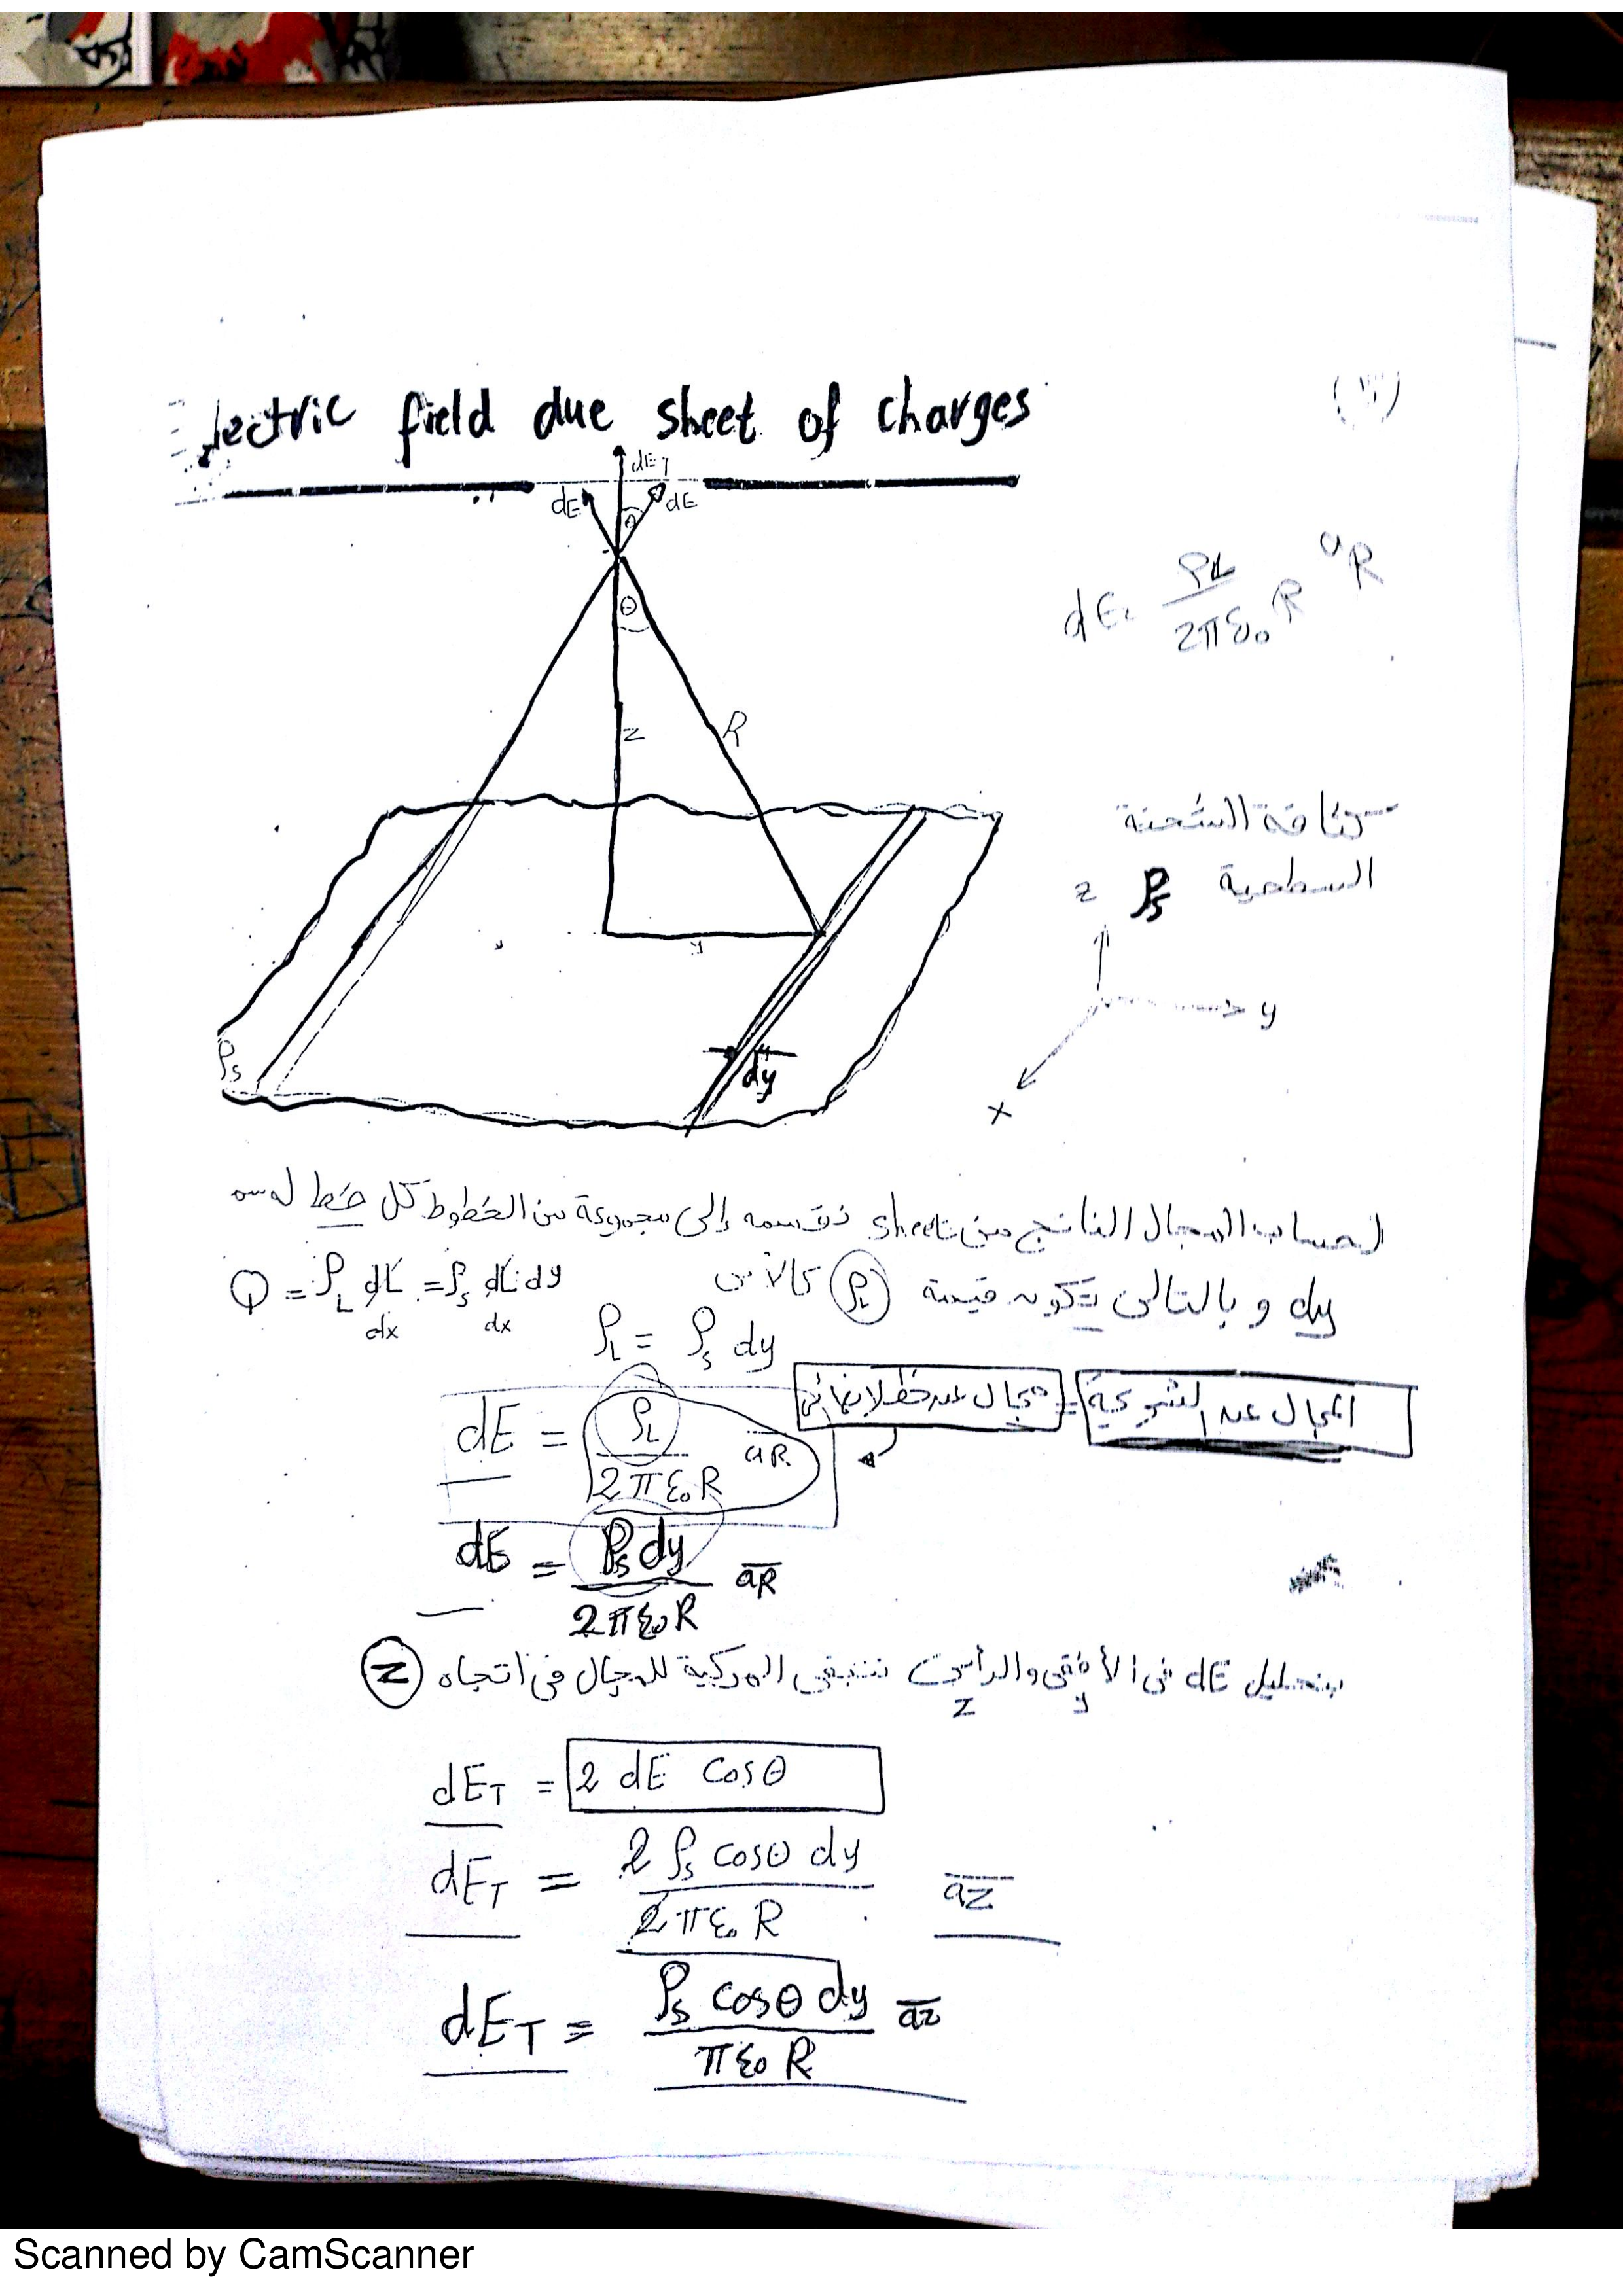 lectric field due sheet of charges
dE_T
dE dE
θ
dE = ρL / 2πε₀R aR
θ
z R
كثافة الشحنة
السطحية ρs
z
y
y
x
ρs
dy
لحساب المجال الناتج من sheet نقسمه إلى مجموعة من الخطوط كل خط له سمك
dy و بالتالى تكون قيمة ρL كالآتى
Q = ρL dL = ρs dL dy
dx dx
ρL = ρs dy
المجال عند الشريحة = مجال عند خط لا نهائى
dE = ρL / 2πε₀R aR
dE = ρs dy / 2πε₀R aR
بتحليل dE فى الأفقى والرأسى تتبقى المركبة للمجال فى اتجاه Z
z y
dE_T = 2 dE cosθ
dE_T = 2 ρs cosθ dy / 2πε₀R az
dE_T = ρs cosθ dy / πε₀R az
Scanned by CamScanner